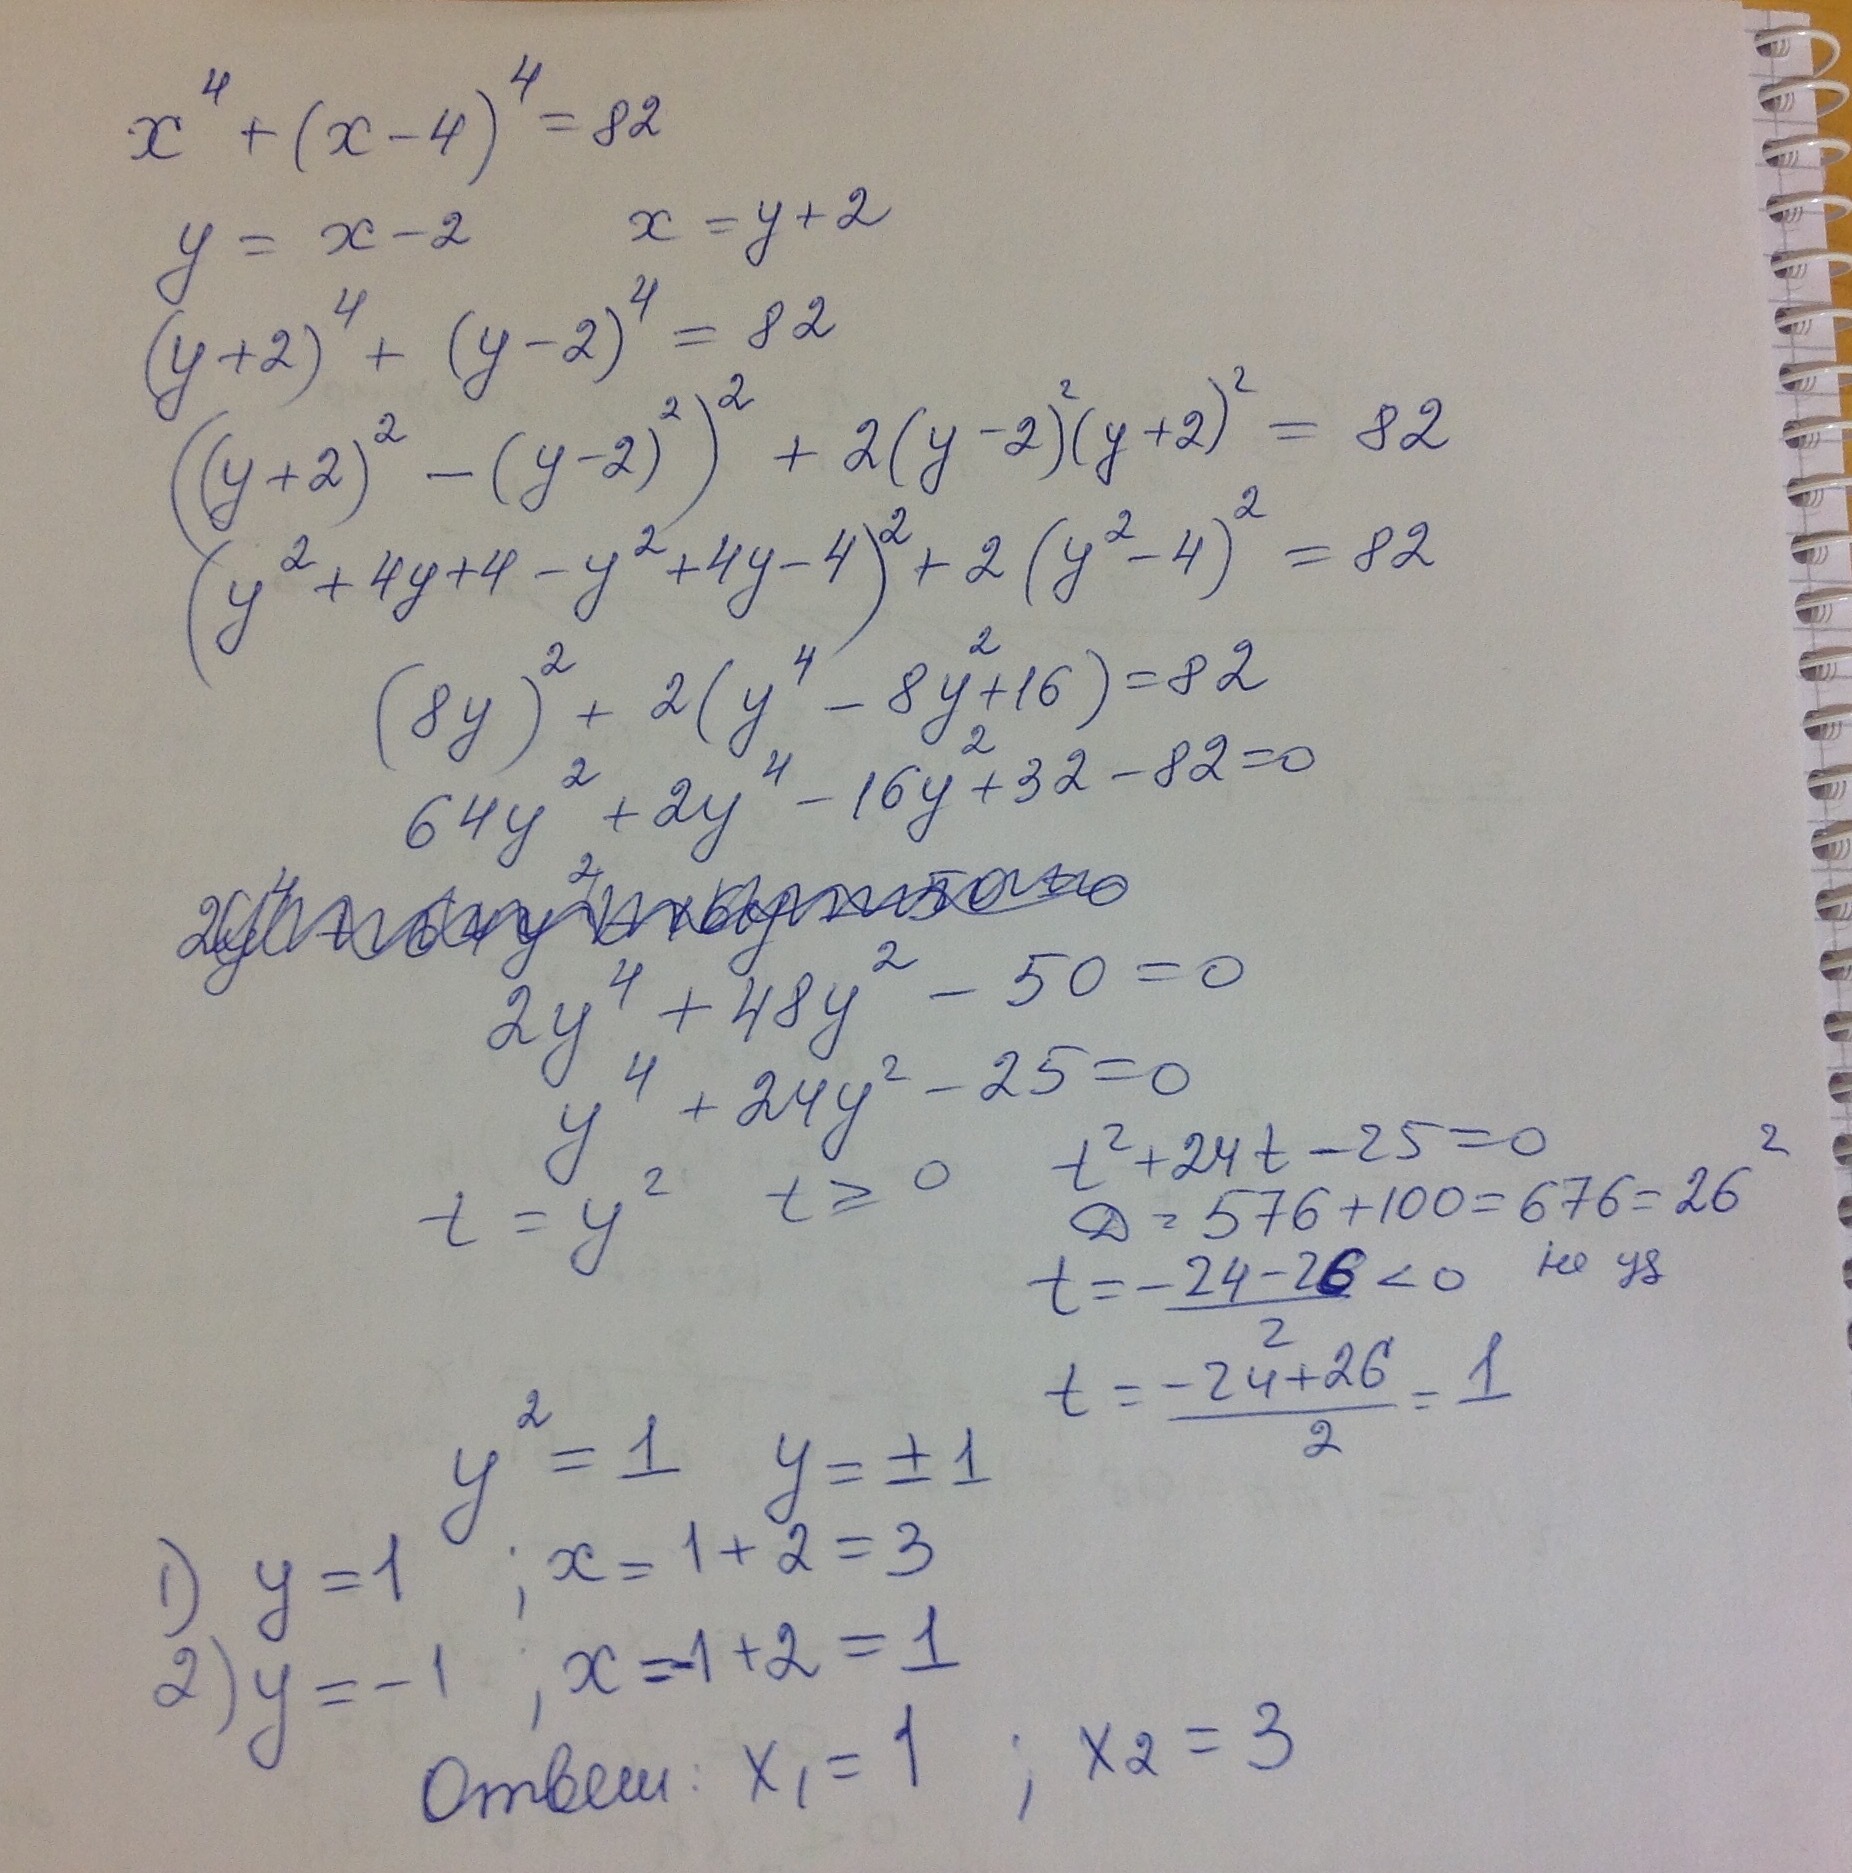 x⁴ + (x - 4)⁴ = 82
y = x - 2 x = y + 2
(y + 2)⁴ + (y - 2)⁴ = 82
((y + 2)² - (y - 2)²)² + 2(y - 2)²(y + 2)² = 82
(y² + 4y + 4 - y² + 4y - 4)² + 2(y² - 4)² = 82
(8y)² + 2(y⁴ - 8y² + 16) = 82
64y² + 2y⁴ - 16y² + 32 - 82 = 0
2y⁴ + 48y² - 50 = 0
y⁴ + 24y² - 25 = 0
t = y² t ≥ 0
t² + 24t - 25 = 0
D = 576 + 100 = 676 = 26²
t = (-24 - 26)/2 < 0 не уд
t = (-24 + 26)/2 = 1
y² = 1 y = ±1
1) y = 1 ; x = 1 + 2 = 3
2) y = -1 ; x = -1 + 2 = 1
Ответ: x₁ = 1 ; x₂ = 3